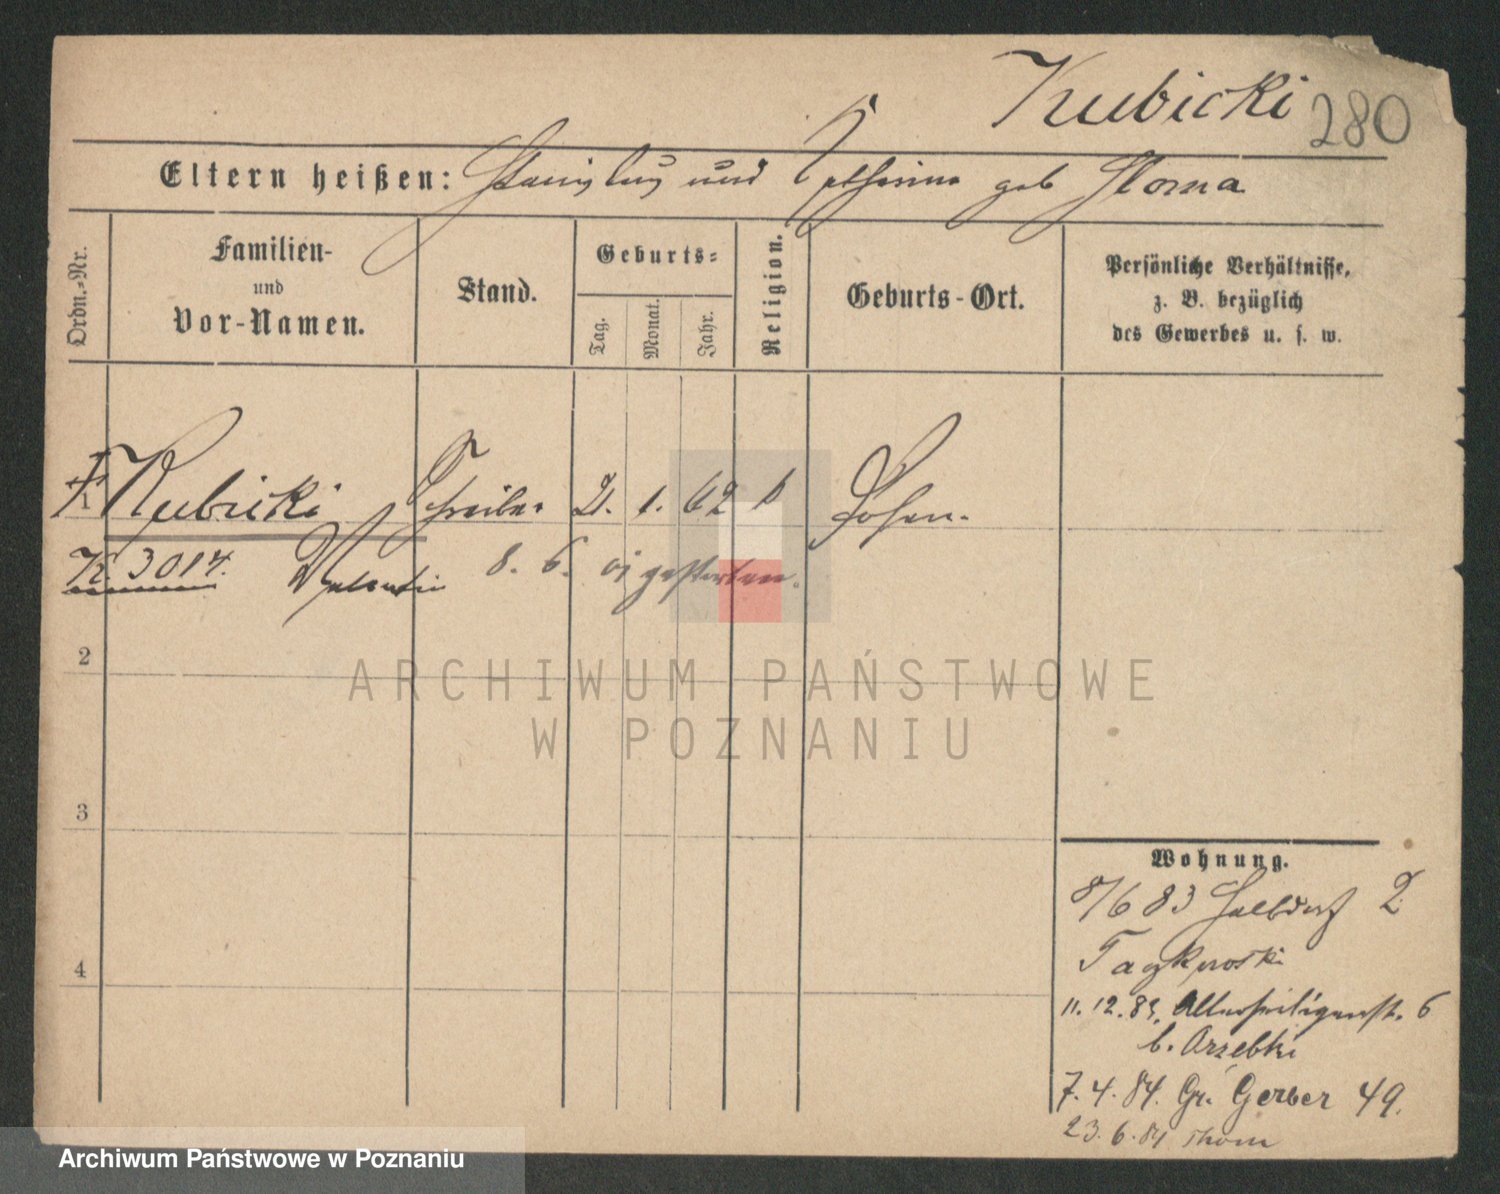 Kubicki 280
Eltern heißen: Stanislaus und Katharina geb Sloma
Ordn.-Nr.
Familien-
und
Vor-Namen.
Stand.
Geburts-
Tag.
Monat.
Jahr.
Religion.
Geburts-Ort.
Persönliche Verhältnisse,
z. B. bezüglich
des Gewerbes u. s. w.
1 Kubicki Schreiber 21. 1. 62 Posen.
3014. Valentin 8. 6. gestorben.
2
3
4
Wohnung.
8/6 83 Halbdorf 2
11. 12. 83. Allerheiligenstr. 6
b. Arzebki
7. 4. 84. Gr. Gerber 49.
23. 6. 84 Thorn
ARCHIWUM PAŃSTWOWE
W POZNANIU
Archiwum Państwowe w Poznaniu